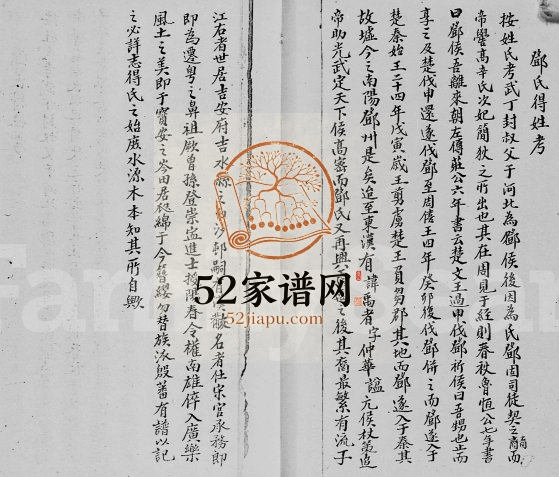 鄧氏得姓考
按姓氏考武丁封叔父于河北為鄧侯後因為氏鄧固司徒契之裔而
帝嚳高辛氏次妃簡狄之所出也其在周見于經則春秋魯恒公七年書
曰鄧侯吾離來朝左傳莊公六年書云楚文王過申伐鄧祈侯曰吾甥也止而
享之及楚伐申還遂伐鄧至周僖王四年癸卯復伐鄧併之而鄧遂入于
楚秦始王二十四年戊寅歲王剪虜楚王負芻郡其地而鄧遂入于秦其
故墟今之南陽鄧州是矣迨至東漢有諱禹者字仲華謚元侯杖策追
帝助光武定天下侯高密而鄧氏又再興之後其裔最繁有流于
江右者世居吉安府吉水縣之沙邨嗣名者仕宋官承務郎
即為遷粤之鼻祖厥曾孫登崇寧進士授陽春令權南雄倅入廣樂
風土之美即于寶安之岑田居綿于今簪纓勿替族派殷蕃有譜以記
之必詳志得氏之始庶水源木本知其所自歟
52家谱网
52jiapu.com